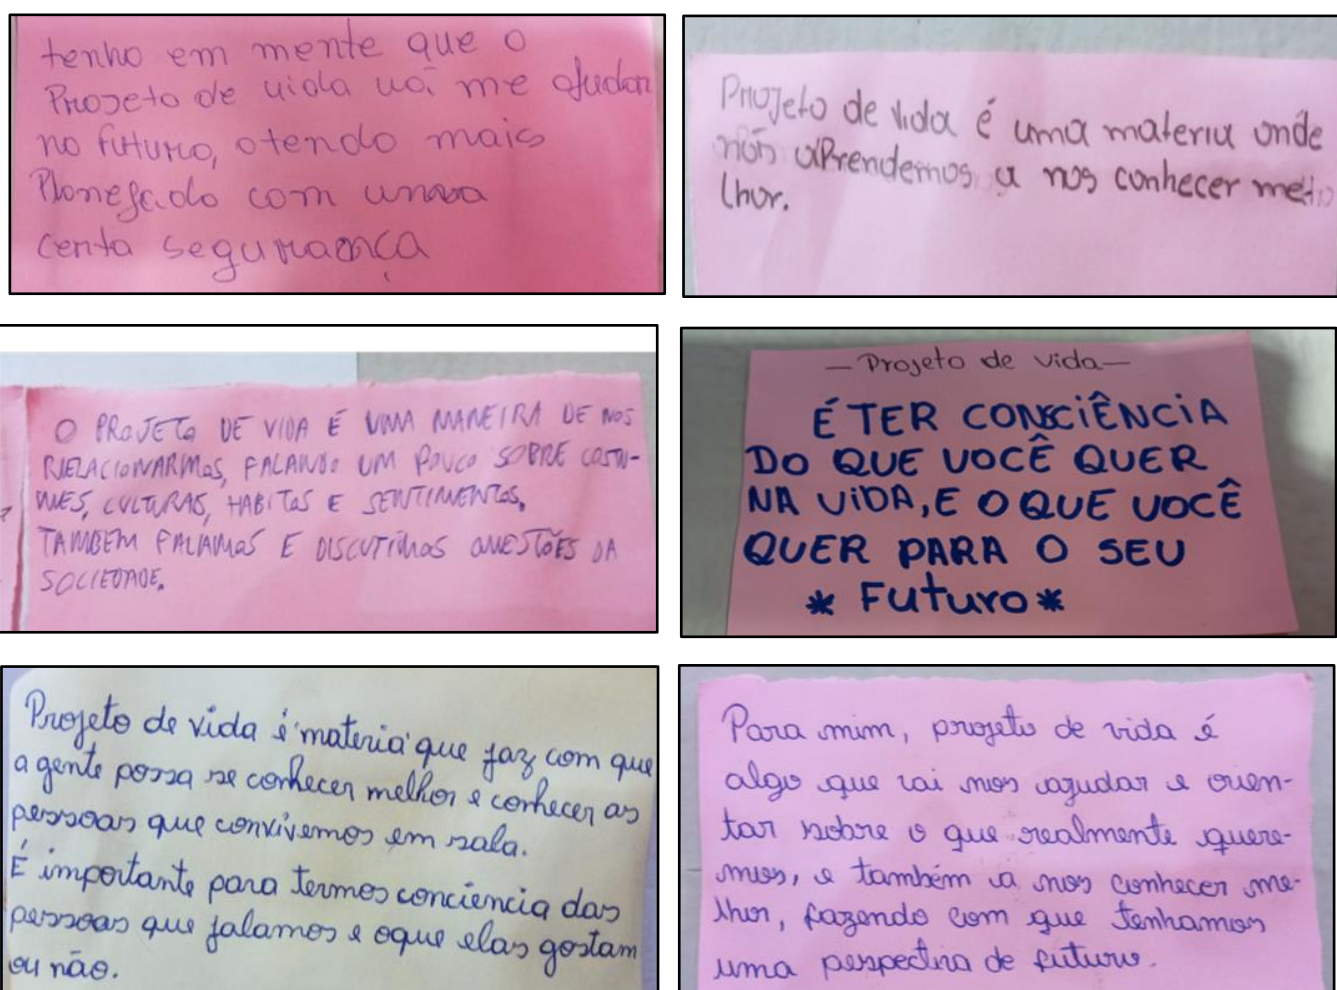 tenho em mente que o
Projeto de vida vai me ajudar
no futuro, o tendo mais
Planejado com uma
certa segurança
Projeto de vida é uma materia onde
nós aPrendemos a nos conhecer me
lhor.
O PROJETO DE VIDA É UMA MANEIRA DE NOS
RELACIONARMOS, FALANDO UM POUCO SOBRE COSTU-
MES, CULTURAS, HABITOS E SENTIMENTOS.
TAMBEM FALAMOS E DISCUTIMOS QUESTÕES DA
SOCIEDADE.
— Projeto de vida —
É TER CONSCIÊNCIA
DO QUE VOCÊ QUER
NA VIDA, E O QUE VOCÊ
QUER PARA O SEU
* Futuro *
Projeto de vida é materia que faz com que
a gente possa se conhecer melhor e conhecer as
pessoas que convivemos em sala.
É importante para termos conciencia das
pessoas que falamos e oque elas gostam
ou não.
Para mim, projeto de vida é
algo que vai nos ajudar e orien-
tar sobre o que realmente quere-
mos, e também a nos conhecer me-
lhor, fazendo com que tenhamos
uma perspectiva de futuro.